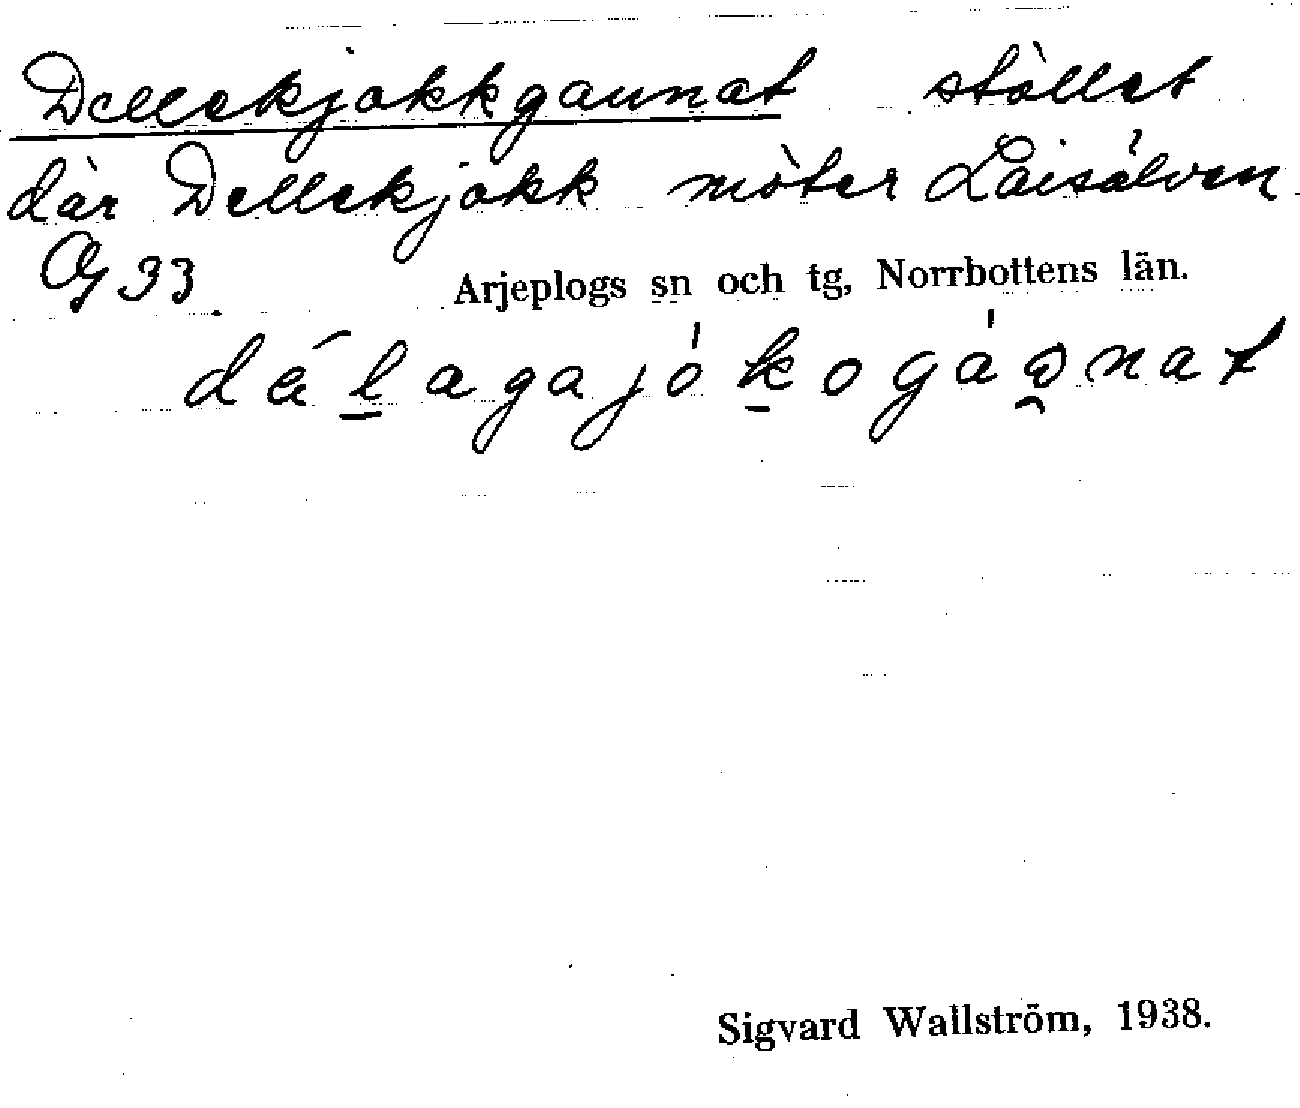 Dellekjokkgaunat stället
där Dellekjokk möter Laisälven
Og 33 Arjeplogs sn och tg, Norrbottens län.
Sigvard Wallström, 1938.